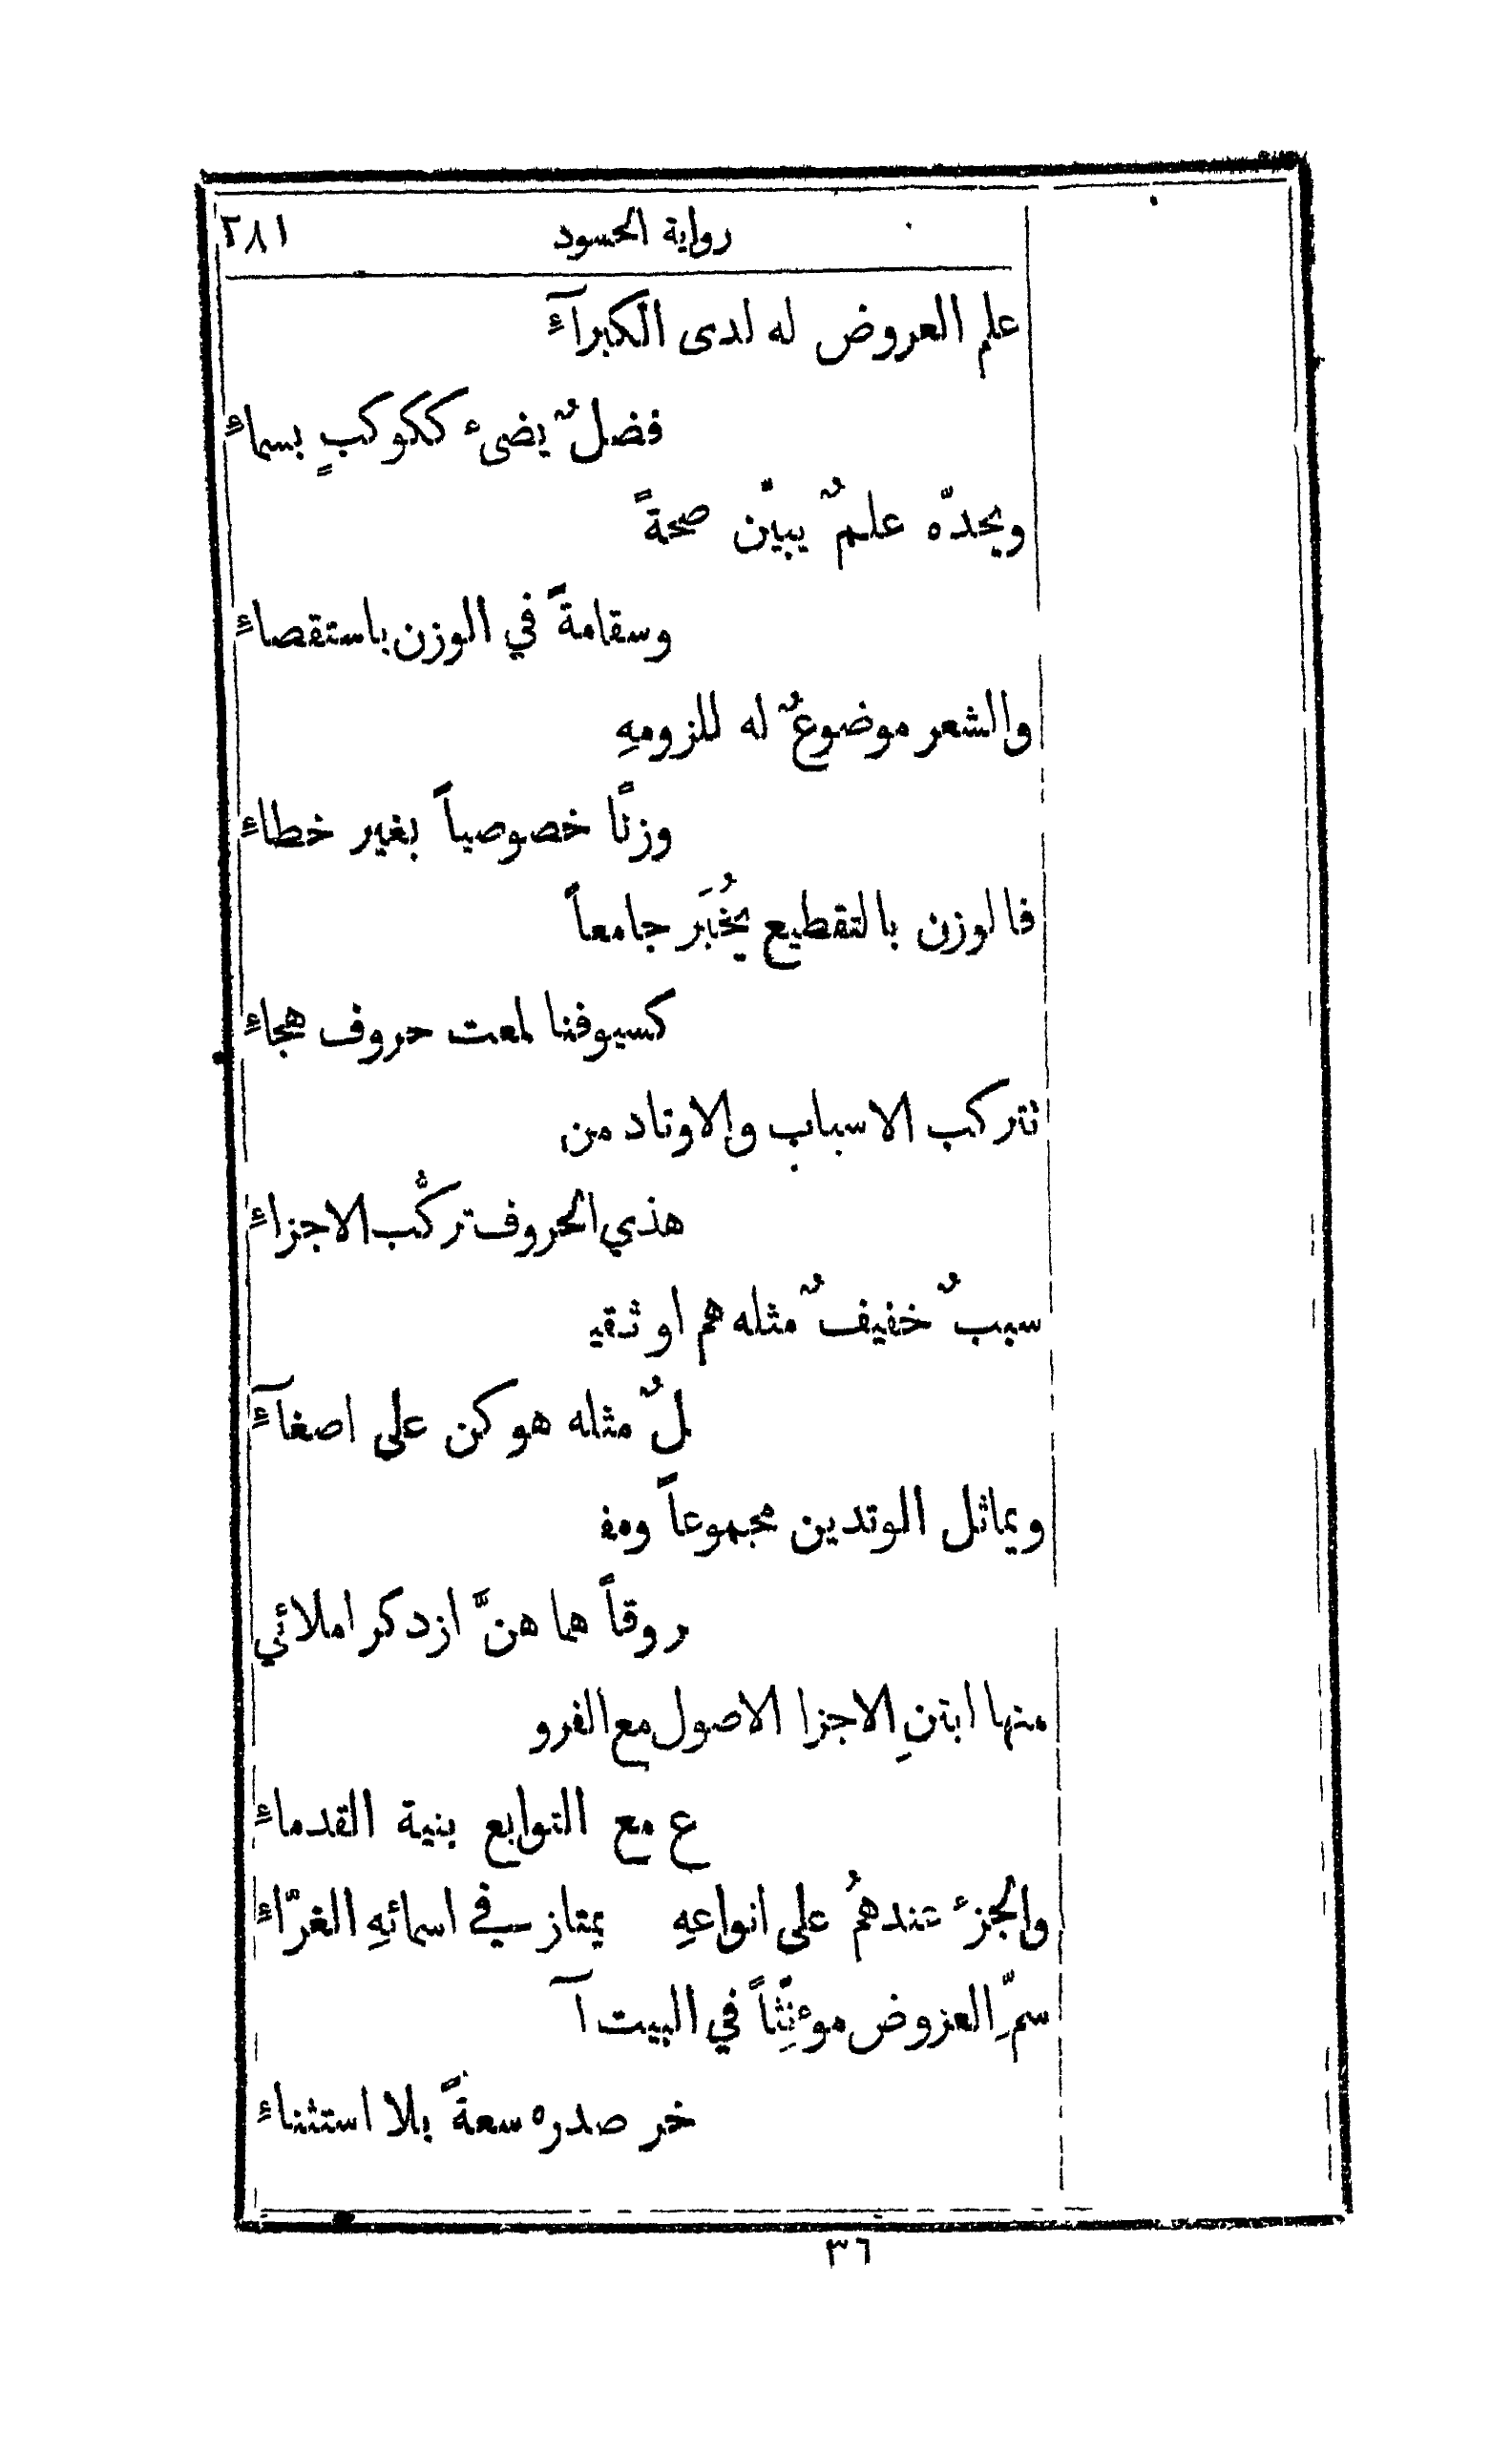 رواية الحسود ٢٨١
علم العروض له لدى الكبرآءِ
فضلٌ يضىء ككوكبٍ بسماءِ
ويحدّه علمٌ يبيّن صحةً
وسقامةً في الوزن باستقصاءِ
والشعر موضوعٌ له للزومهِ
وزنًا خصوصياً بغير خطاءِ
فالوزن بالتقطيع يُخبَر جامعاً
كسيوفنا لمعت حروف هجاءِ
تتركب الاسباب والاوتاد من
هذي الحروف تركّب الاجزاءِ
سببٌ خفيفٌ مثله هم او ثقيـ
لٌ مثله هو كن على اصغآءِ
ويماثل الوتدين مجموعاً ومفـ
ـروقاً هما هنَّ ازدكر املائي
منها ابتنِ الاجزا الاصول مع الفرو
ع مع التوابع بنية القدماءِ
والجزء عندهمُ على انواعهِ يمتاز في اسمائهِ الغرّاءِ
سمِّ العزوض موءنِّثاً في البيت آ
خر صدره سعةً بلا استثناءِ
٣٦